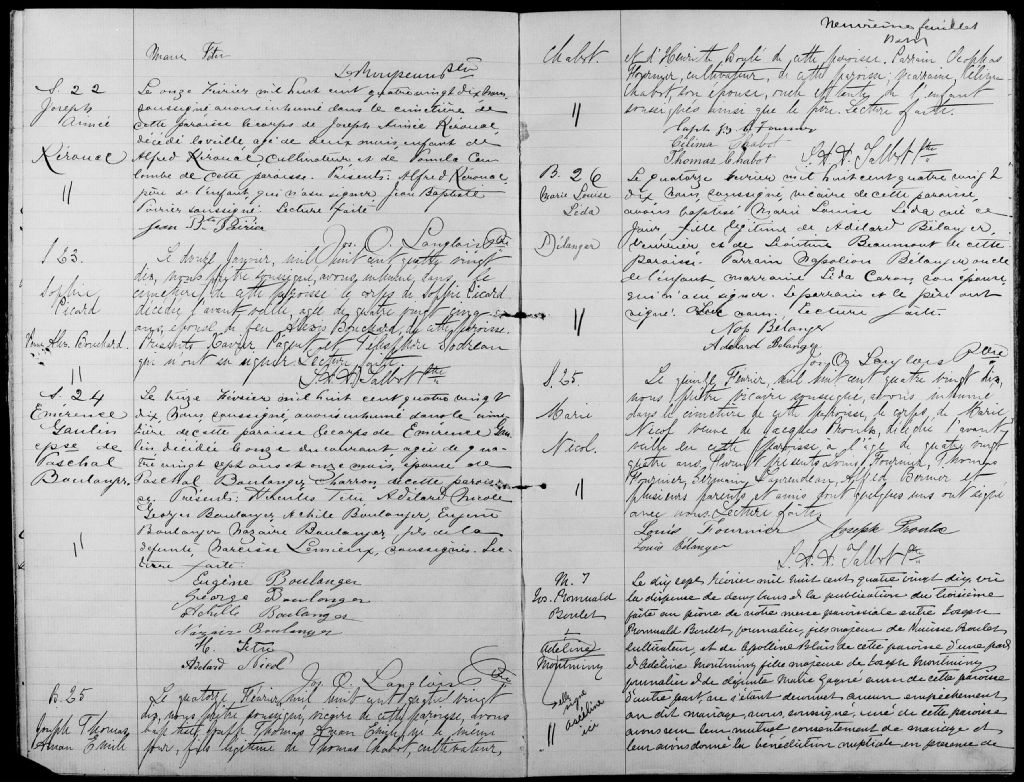 Marie Fter
S. 22
Joseph
Aimée
Kérouac
//
Le onze Février mil huit cent quatre vingt dix, nous
soussigné avons inhumé dans le cimetière de
cette paroisse le corps de Joseph Aimée Kérouac,
décédé la veille, agé de deux mois, enfant de
Alfred Kérouac cultivateur et de
de cette paroisse. Présents: Alfred Kérouac,
père de l'enfant, qui n'a su signer, Jean Baptiste
Poirier soussigné. Lecture faite
Jean Bte Poirier
Jos. O. Langlois Ptre
S 23.
Sophie
Picard
Vve Alex. Bouchard.
//
Le douze Janvier, mil huit cent quatre vingt
dix, nous prêtre soussigné, avons inhumé dans le
cimetière de cette paroisse le corps de Sophie Picard
décédée l'avant veille, agée de quatre vingt
ans, épouse de feu Alexis Bouchard, de cette paroisse.
Présents Xavier et Télesphore
qui n'ont su signer. Lecture faite
L. A. A. Talbot Ptre
S. 24
Emérence
Gaulin
epse de
Paschal
Boulanger.
//
Le treize Février mil huit cent quatre vingt
dix, Nous soussigné avons inhumé dans le cime-
tière de cette paroisse le corps de Emérence Gau-
lin décédée le onze du courant agée de qua-
tre vingt sept ans et onze mois, épouse de
Paschal Boulanger, Charron de cette parois-
se. Présents: Charles Têtu Adélard Nicole
Georges Boulanger, Achile Boulanger, Eugène
Boulanger Nazaire Boulanger fils de la
défunte, Narcisse Lemieux, soussignés. Lec-
ture faite.
Eugène Boulanger
George Boulanger
Achille Boulanger
Nazair Boulanger
N. Tetu
Adelard Nicol
Jos. O. Langlois Ptre
B. 25
Joseph Thomas
Aman Emile
Le quatorze Février, mil huit cent quatre vingt
dix, nous prêtre soussigné, vicaire de cette paroisse, avons
baptisé Joseph Thomas Aman Emile, né le même
jour, fils légitime de Thomas Chabot, cultivateur,
Neuvième feuillet
Chabot.
//
& d'Henriette Boulé de cette paroisse. Parrain Cléophas
Fournier, cultivateur, de cette paroisse; marraine, Célina
Chabot, son épouse, oncle et tante de l'enfant
soussignés ainsi que le père. Lecture faite.
Fournier
Célima Chabot
Thomas Chabot
L. A. A. Talbot Ptre
B. 26
Marie Louise
Léda
Bélanger
//
Le quatorze Février mil huit cent quatre vingt
dix, Nous, soussigné, vicaire de cette paroisse,
avons baptisé Marie Louise Léda née ce
jour, fille légitime de Adélard Bélanger,
et de Léontine Beaumont de cette
paroisse. Parrain Napoléon Bélanger oncle
de l'enfant, marraine Léda Caron, son épouse,
qui n'a su signer. Le parrain et le père ont
signé. lecture faite.
Nap Bélanger
Adelard Bélanger
Jos. O. Langlois Ptre
S. 25.
Marie
Nicol.
//
Le quinze Février, mil huit cent quatre vingt dix,
nous prêtre vicaire soussigné, avons inhumé
dans le cimetière de cette paroisse, le corps, de Marie
Nicol veuve de Jacques Proulx, décédée l'avant
veille en cette paroisse à l'âge de quatre vingt
quatre ans. Furent présents Louis Fournier, Thomas
Fournier, Germain Gagnon, Alfred Bernier et
plusieurs parents et amis dont quelques uns ont signé
avec nous. Lecture faite
Louis Fournier Joseph Proulx
Louis Bélanger
L. A. A. Talbot Ptre
M. 7
Jos. Romuald
Boulet
&
Adeline
Montminy
//
Le dix sept Février mil huit cent quatre vingt dix, vu
la dispense de deux bans & la publication du troisième
faite au prône de notre messe paroissiale entre Joseph
Romuald Boulet, journalier, fils majeur de Boulet
cultivateur, et de Apolline Blais de cette paroisse d'une part
et Adeline Montminy fille majeure de Joseph Montminy
journalier et de défunte Marie Gagné aussi de cette paroisse
d'autre part, ne s'étant découvert aucun empêchement
au dit mariage, nous, soussigné, curé de cette paroisse
avons reçu leur mutuel consentement de mariage et
leur avons donné la bénédiction nuptiale en présence de